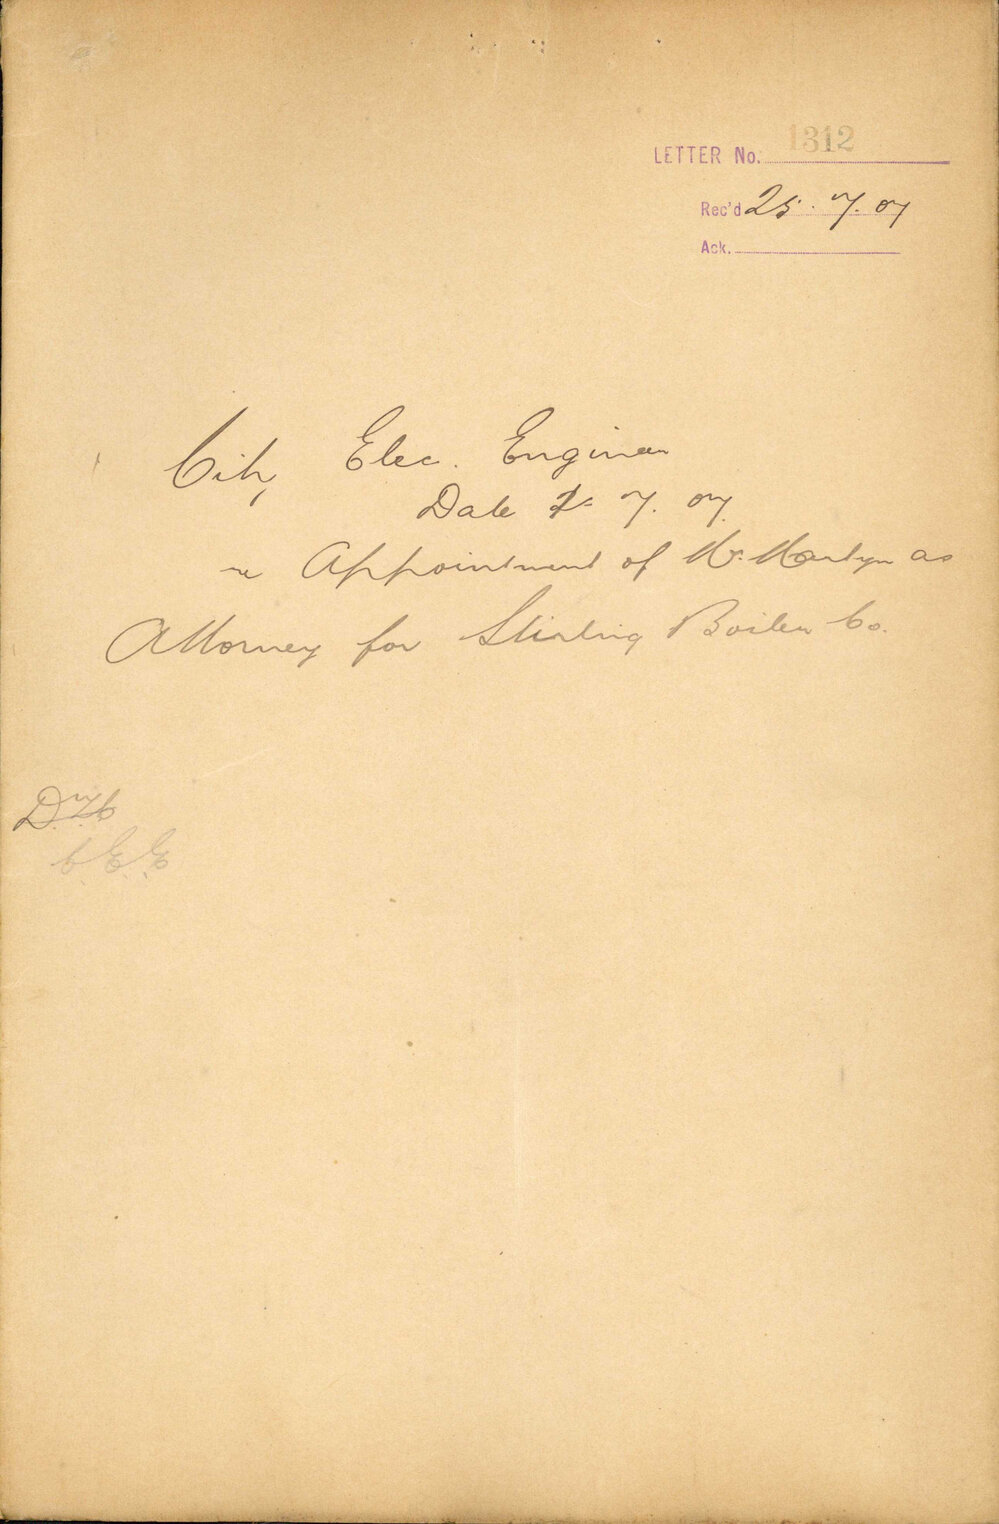 LETTER No. 1312
Rec'd 25.7.07
Ack.
City Elec. Engineer
Date 7. 07.
re Appointment of Mr. Martyn as
Attorney for Stirling Boiler Co.
C.E.E